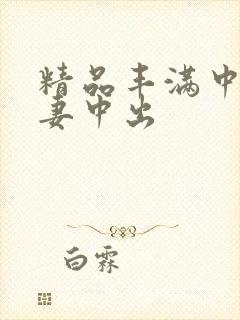 精品丰满中
妻中出
白霖